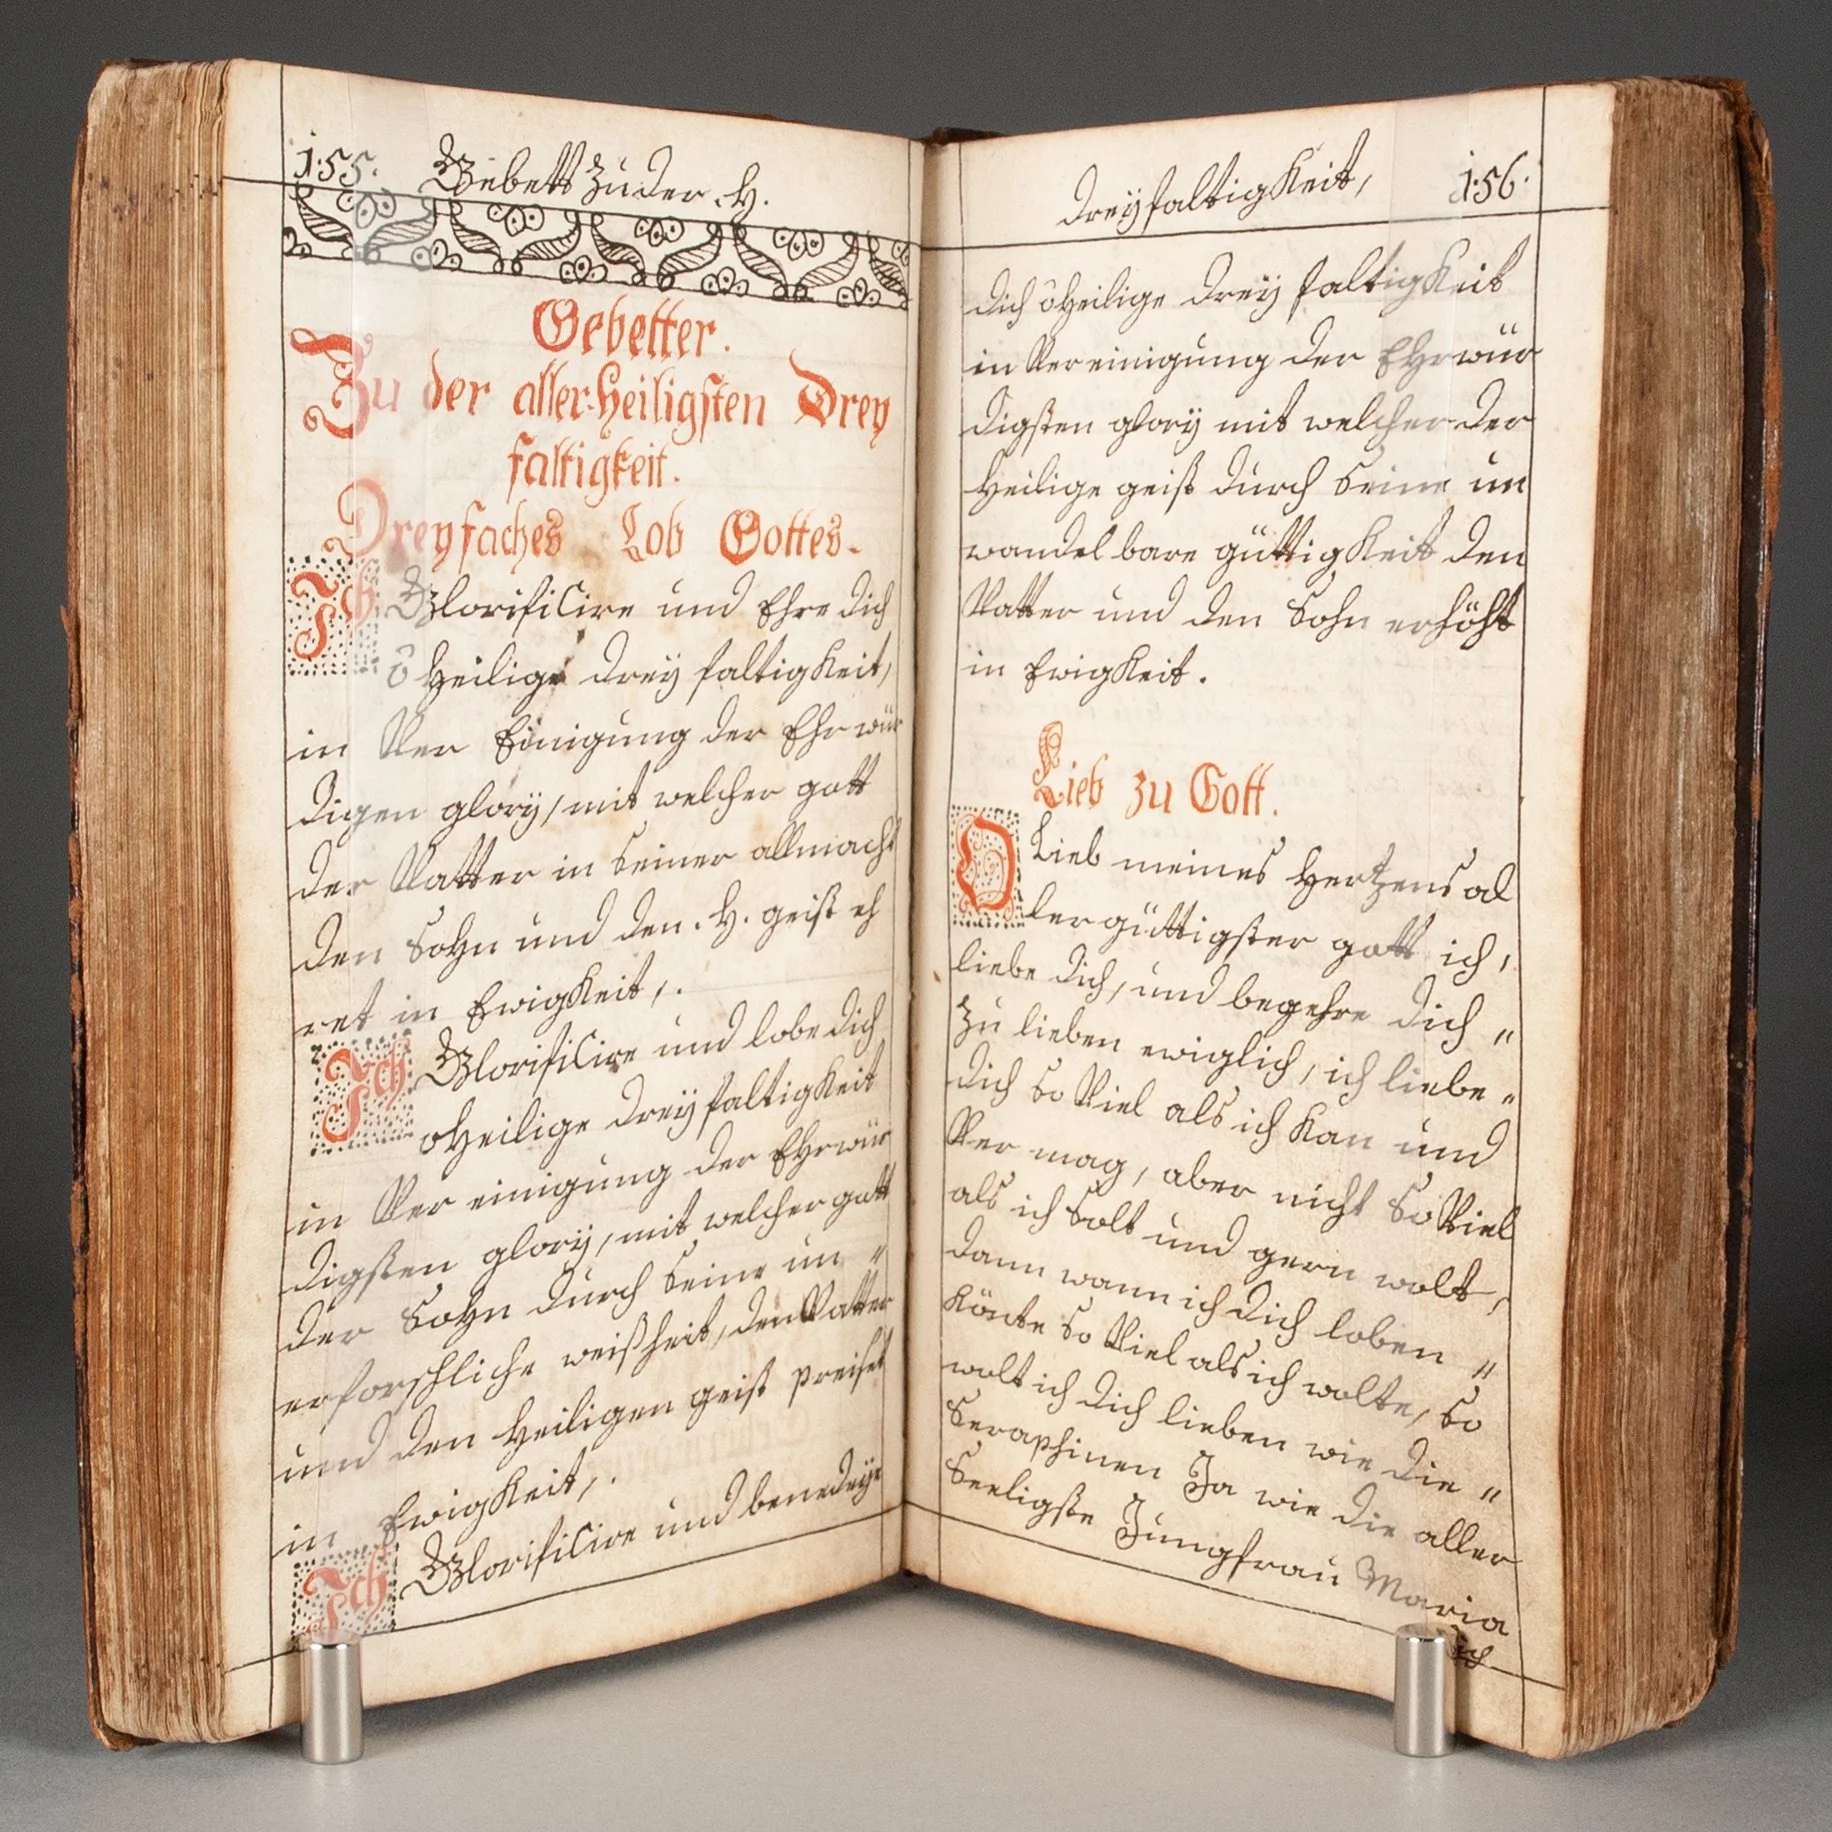 155. Gebett zu der .H.
Gebetter.
Zu der aller Heiligsten Drey
faltigkeit.
Dreyfaches Lob Gottes.
Ich Glorificire und Ehre dich
ô Heilige dreÿ faltigKeit,
in Ver Einigung der Ehrwür
digen glorÿ, mit welcher gott
der Vatter in seiner allmacht
den SoHn und den .H. geist eh
ret in EwigKeit,.
Ich Glorificire und lobe dich
o Heilige dreÿ faltigKeit
in Ver einigung der EHrwür
digsten glorÿ, mit welcher gott
der SoHn durch seine un "
erforschliche weißheit, den Vatter
und den Heiligen geist preiset
in EwigKeit,.
Ich Glorificire und benedeÿe
dreÿfaltigKeit, 156.
dich ô Heilige dreÿ faltigKeit
in Ver einigung der EHrwür
digsten glorÿ mit welcher der
Heilige geist durch seine un
wandel bare güttigKeit den
Vatter und den Sohn erhöht
in EwigKeit.
Lieb zu Gott.
O Lieb meines Hertzens al
ler güttigster gott ich,
liebe dich, und begehre dich "
zu lieben ewiglich, ich liebe "
dich so Viel als ich Kan und
Ver mag, aber nicht so Viel
als ich solt und gern wolt,
dann wann ich dich loben "
Könte so Viel als ich wolte, so
wolt ich dich lieben wie die "
Seraphinen Ja wie die aller
Seeligste Jungfrau Maria
ich